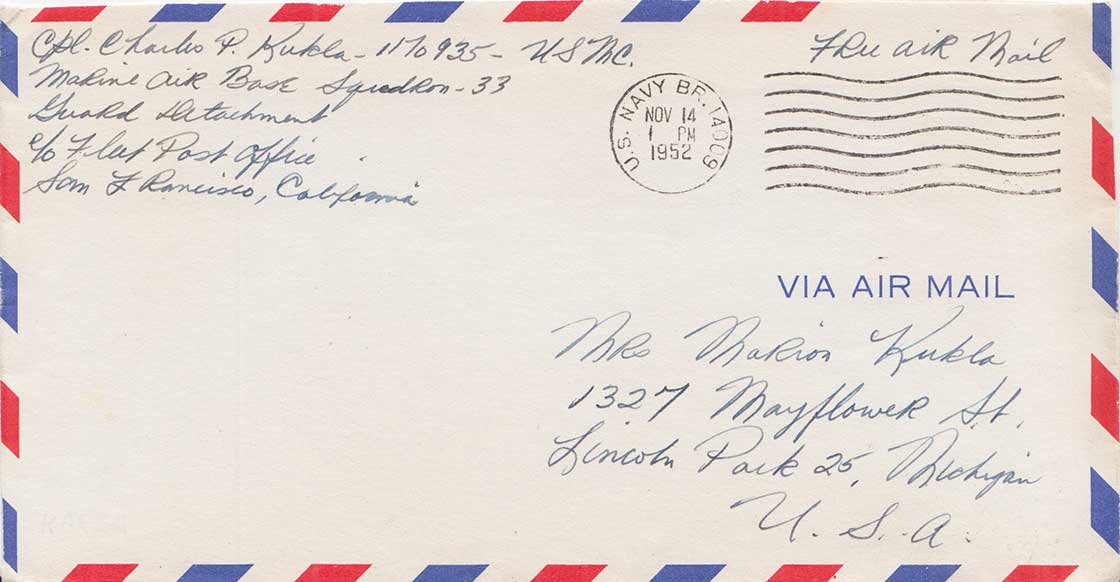 Cpl. Charles P. Kukla - 1170935 - USMC.
Marine Air Base Squadron - 33
Guard Detachment
c/o Fleet Post Office
San Francisco, California
Free air Mail
U.S. NAVY BR. 14009
NOV 14
1 PM
1952
VIA AIR MAIL
Mrs Marion Kukla
1327 Mayflower St.
Lincoln Park 25, Michigan
U. S. A.